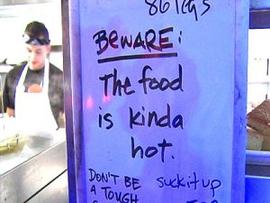 BEWARE:
The food
is kinda
hot.
DON'T BE suck it up
A TOUGH